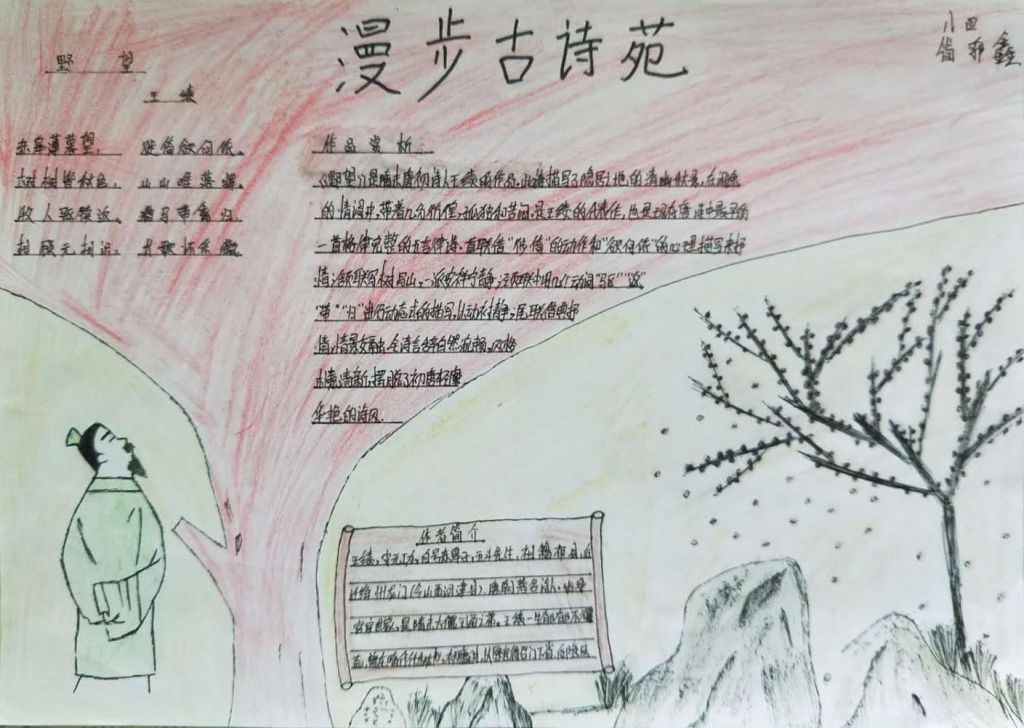 漫步古诗苑
八四
野望
王绩
东皋薄暮望, 徙倚欲何依。
树树皆秋色, 山山唯落晖。
牧人驱犊返, 猎马带禽归。
相顾无相识, 长歌怀采薇
作品赏析:
《野望》是隋末唐初诗人王绩的作品,此诗描写了隐居之地的清幽秋景,在闲逸
的情调中,带着几分彷徨,孤独和苦闷,是王绩的代表作,也是现存唐诗中最早的
一首格律完整的五言律诗,首联借"徙倚"的动作和"欲何依"的心理描写来抒
情,颔联写树写山,一派安祥宁静,颈联中用几个动词"驱""返"
"带""归"进行动态式的描写,以动衬静,尾联借典抒
情,情景交融,全诗言辞自然流畅,风格
朴素清新,摆脱了初唐轻靡
华艳的诗风
作者简介
王绩,字无功,号东皋子,五斗先生,
绛州龙门(今山西河津县),唐朝著名诗人,出身
官宦世家,是隋末大儒王通之弟,王绩一生